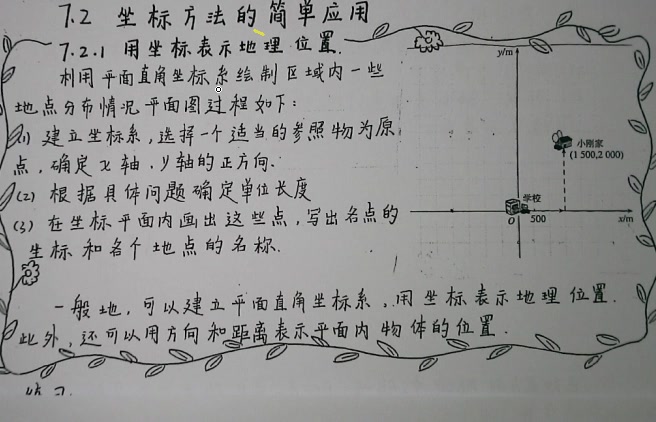 7.2 坐标方法的简单应用
7.2.1 用坐标表示地理位置.
利用平面直角坐标系绘制区域内一些
地点分布情况平面图过程如下:
(1) 建立坐标系,选择一个适当的参照物为原
点,确定x轴.y轴的正方向.
(2) 根据具体问题确定单位长度
(3) 在坐标平面内画出这些点,写出各点的
坐标和各个地点的名称.
y/m
小刚家
(1 500,2 000)
学校
O 500 x/m
一般地,可以建立平面直角坐标系,用坐标表示地理位置.
此外,还可以用方向和距离表示平面内物体的位置.